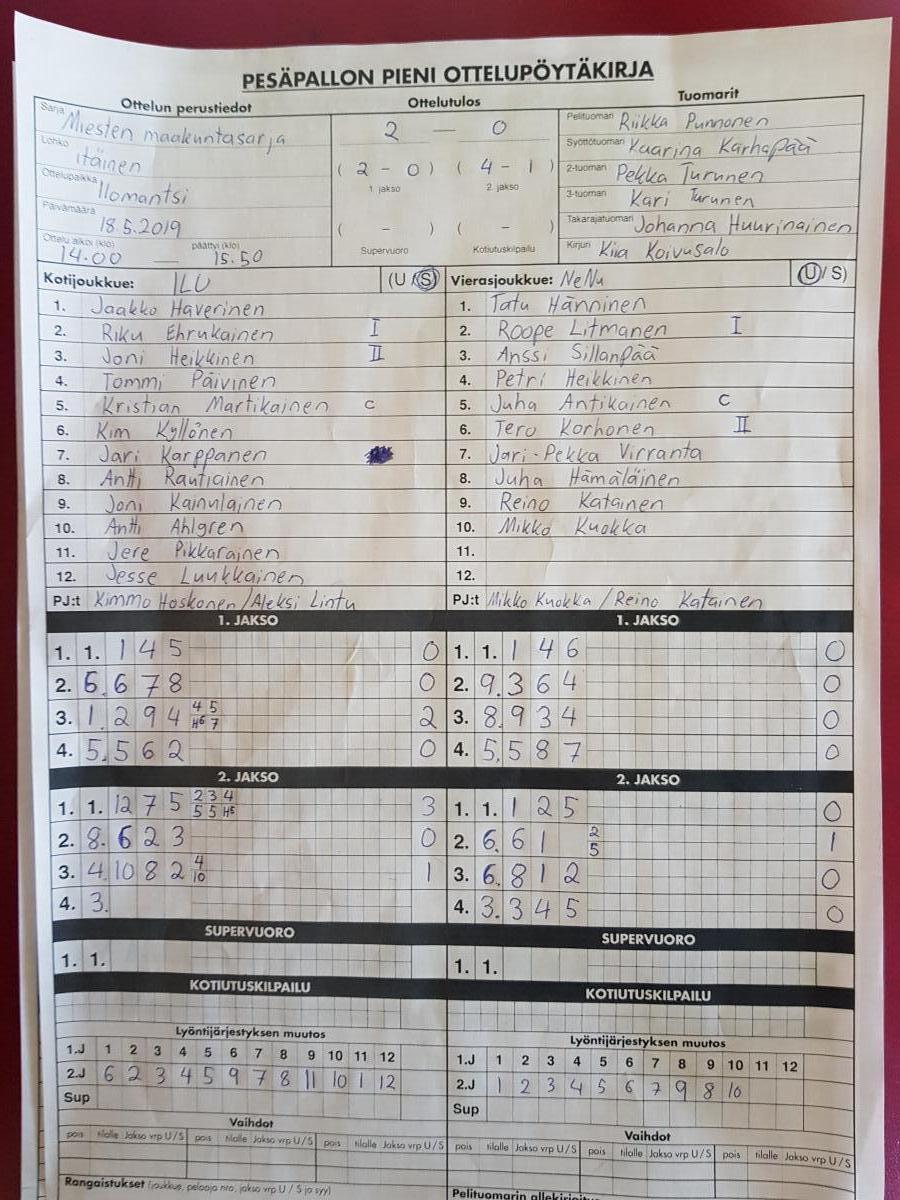 PESÄPALLON PIENI OTTELUPÖYTÄKIRJA
Ottelun perustiedot
Sarja Miesten maakuntasarja
Lohko itäinen
Ottelupaikka Ilomantsi
Päivämäärä 18.5.2019
Ottelu alkoi (klo) päättyi (klo)
14.00 — 15.50
Ottelutulos
2 — 0
( 2 - 0 ) ( 4 - 1 )
1. jakso 2. jakso
( - ) ( - )
Supervuoro Kotiutuskilpailu
Tuomarit
Pelituomari Riikka Punnonen
Syöttötuomari Kaarina Karhapää
2-tuomari Pekka Turunen
3-tuomari Kari Turunen
Takarajatuomari Johanna Huurinainen
Kirjuri Kiia Koivusalo
Kotijoukkue: ILU (U / S)
1. Jaakko Haverinen
2. Riku Ehrukainen I
3. Joni Heikkinen II
4. Tommi Päivinen
5. Kristian Martikainen C
6. Kim Kyllönen
7. Jari Karppanen
8. Antti Rautiainen
9. Joni Kainulainen
10. Antti Ahlgren
11. Jere Pikkarainen
12. Jesse Luukkainen
PJ:t Kimmo Hoskonen / Aleksi Lintu
Vierasjoukkue: NeNu (U / S)
1. Tatu Hänninen
2. Roope Litmanen I
3. Anssi Sillanpää
4. Petri Heikkinen
5. Juha Antikainen C
6. Tero Korhonen II
7. Jari-Pekka Virranta
8. Juha Hämäläinen
9. Reino Katainen
10. Mikko Kuokka
11.
12.
PJ:t Mikko Kuokka / Reino Katainen
1. JAKSO
1. 1. 1 4 5 0
2. 6. 6 7 8 0
3. 1. 2 9 4 4 5 H6 7 2
4. 5. 5 6 2 0
2. JAKSO
1. 1. 12 7 5 2 3 4 5 5 H5 3
2. 8. 6 2 3 0
3. 4. 10 8 2 4 10 1
4. 3.
SUPERVUORO
1. 1.
KOTIUTUSKILPAILU
Lyöntijärjestyksen muutos
1.J 1 2 3 4 5 6 7 8 9 10 11 12
2.J 6 2 3 4 5 9 7 8 11 10 1 12
Sup
Vaihdot
pois tilalle Jakso vrp U / S pois tilalle Jakso vrp U / S pois tilalle Jakso vrp U / S
Rangaistukset (joukkue, pelaaja nro, jakso vrp U / S ja syy)
1. JAKSO
1. 1. 1 4 6 0
2. 9. 3 6 4 0
3. 8. 9 3 4 0
4. 5. 5 8 7 0
2. JAKSO
1. 1. 1 2 5 0
2. 6. 6 1 2 5 1
3. 6. 8 1 2 0
4. 3. 3 4 5 0
SUPERVUORO
1. 1.
KOTIUTUSKILPAILU
Lyöntijärjestyksen muutos
1.J 1 2 3 4 5 6 7 8 9 10 11 12
2.J 1 2 3 4 5 6 7 9 8 10
Sup
Vaihdot
pois tilalle Jakso vrp U / S pois tilalle Jakso vrp U / S pois tilalle Jakso vrp U / S
Pelituomarin allekirjoitus